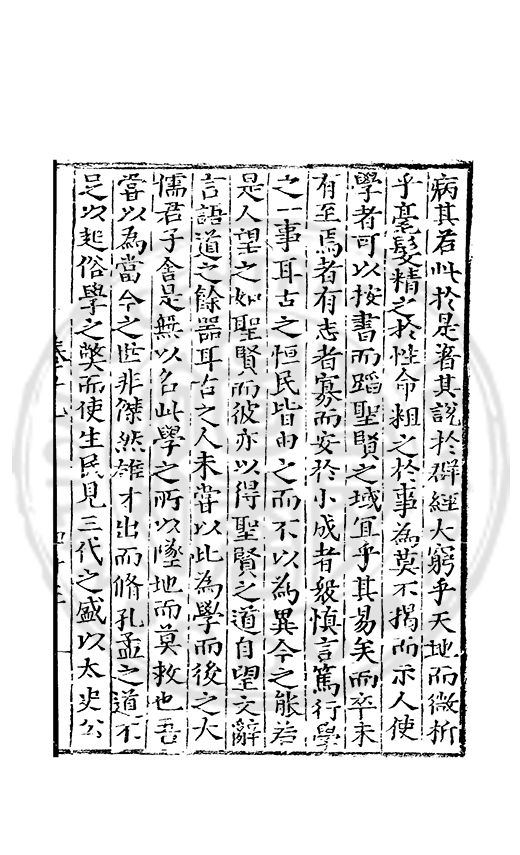 病其若此於是著其說於群經大窮乎天地而微析
乎毫髮精之於性命粗之於事為莫不揭而示人使
學者可以按書而蹈聖賢之域宜乎其易矣而卒未
有至焉者有志者寡而安於小成者眾慎言篤行學
之一事耳古之恒民皆由之而不以為異今之能若
是人望之如聖賢而彼亦以得聖賢之道自望文辭
言語道之餘器耳古之人未嘗以此為學而後之大
儒君子舍是無以名此學之所以墜地而莫救也吾
嘗以為當今之世非傑然雄才出而脩孔孟之道不
足以起俗學之弊而使生民見三代之盛以太史公